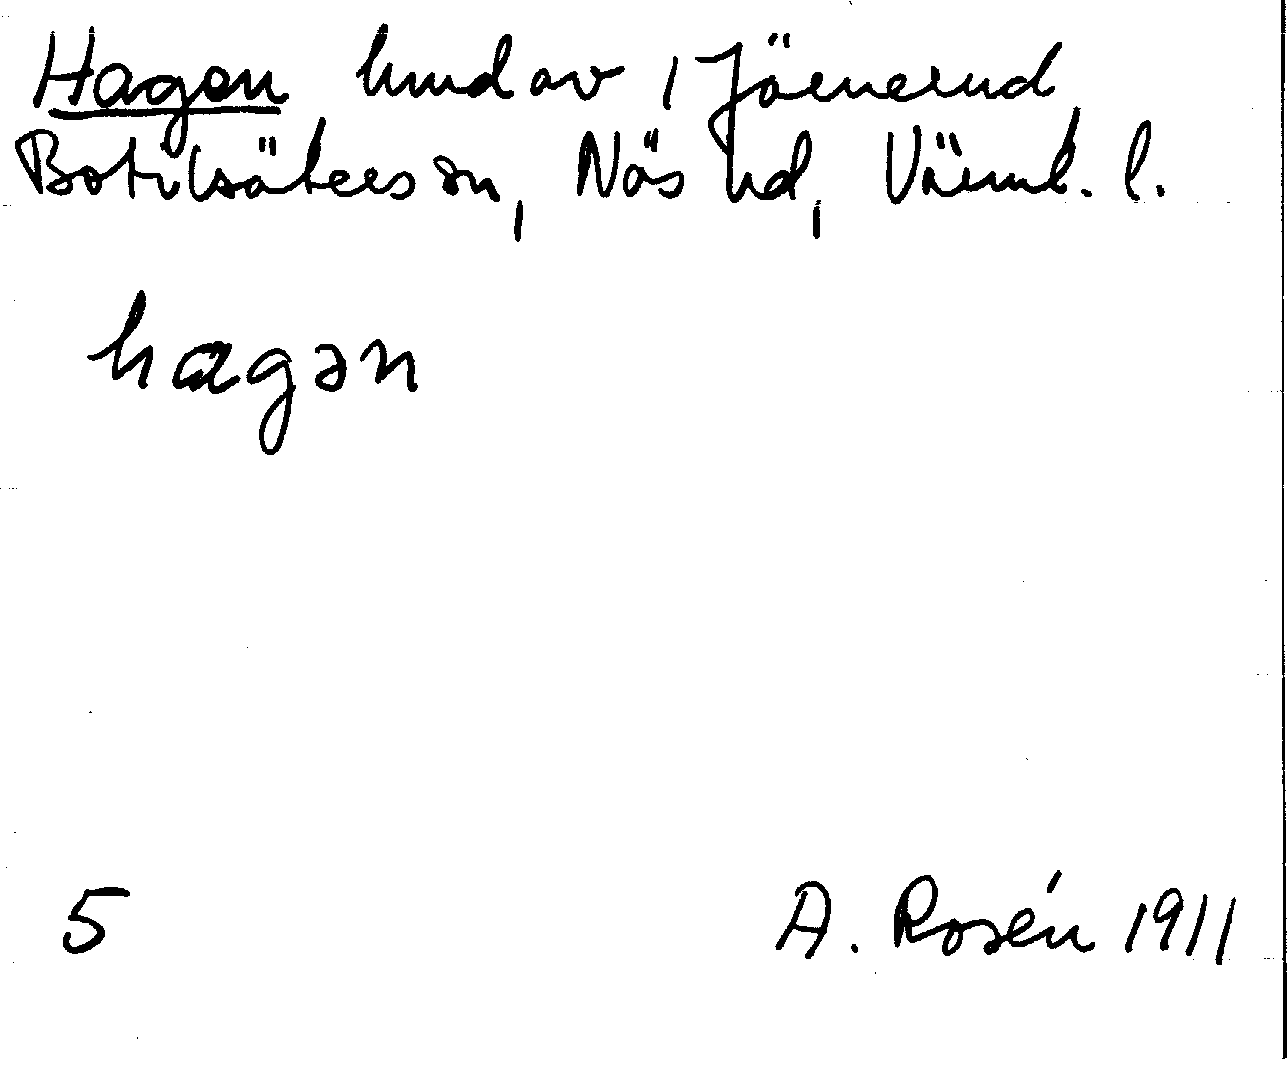 Hagen hmd av 1 Järnerud
Botilsäters sn, Näs hd, Värml. l.
hagən
5
A. Rosén 1911